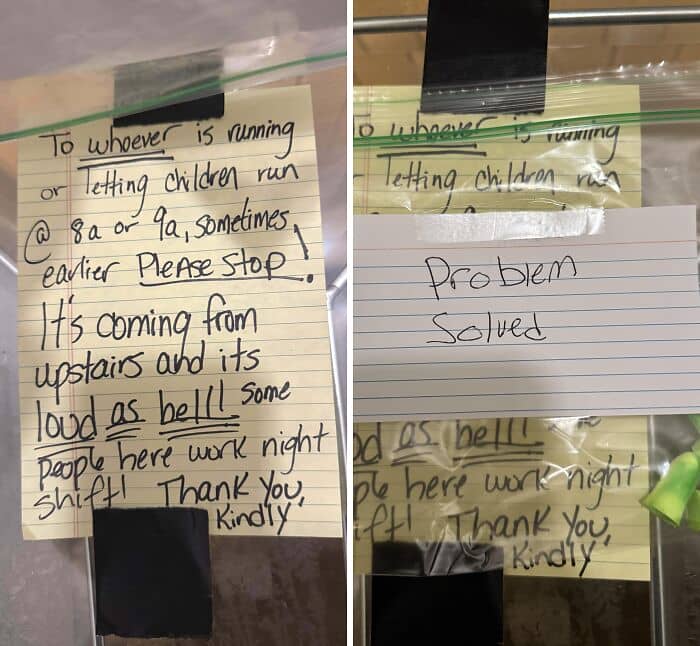 To whoever is running
or letting children run
@ 8a or 9a, sometimes
earlier Please Stop!
It's coming from
upstairs and its
loud as hell! some
people here work night
shift! Thank You,
Kindly
o whoever is running
letting children run
Problem
Solved
d as hell!
ple here work night
ift! Thank You,
Kindly